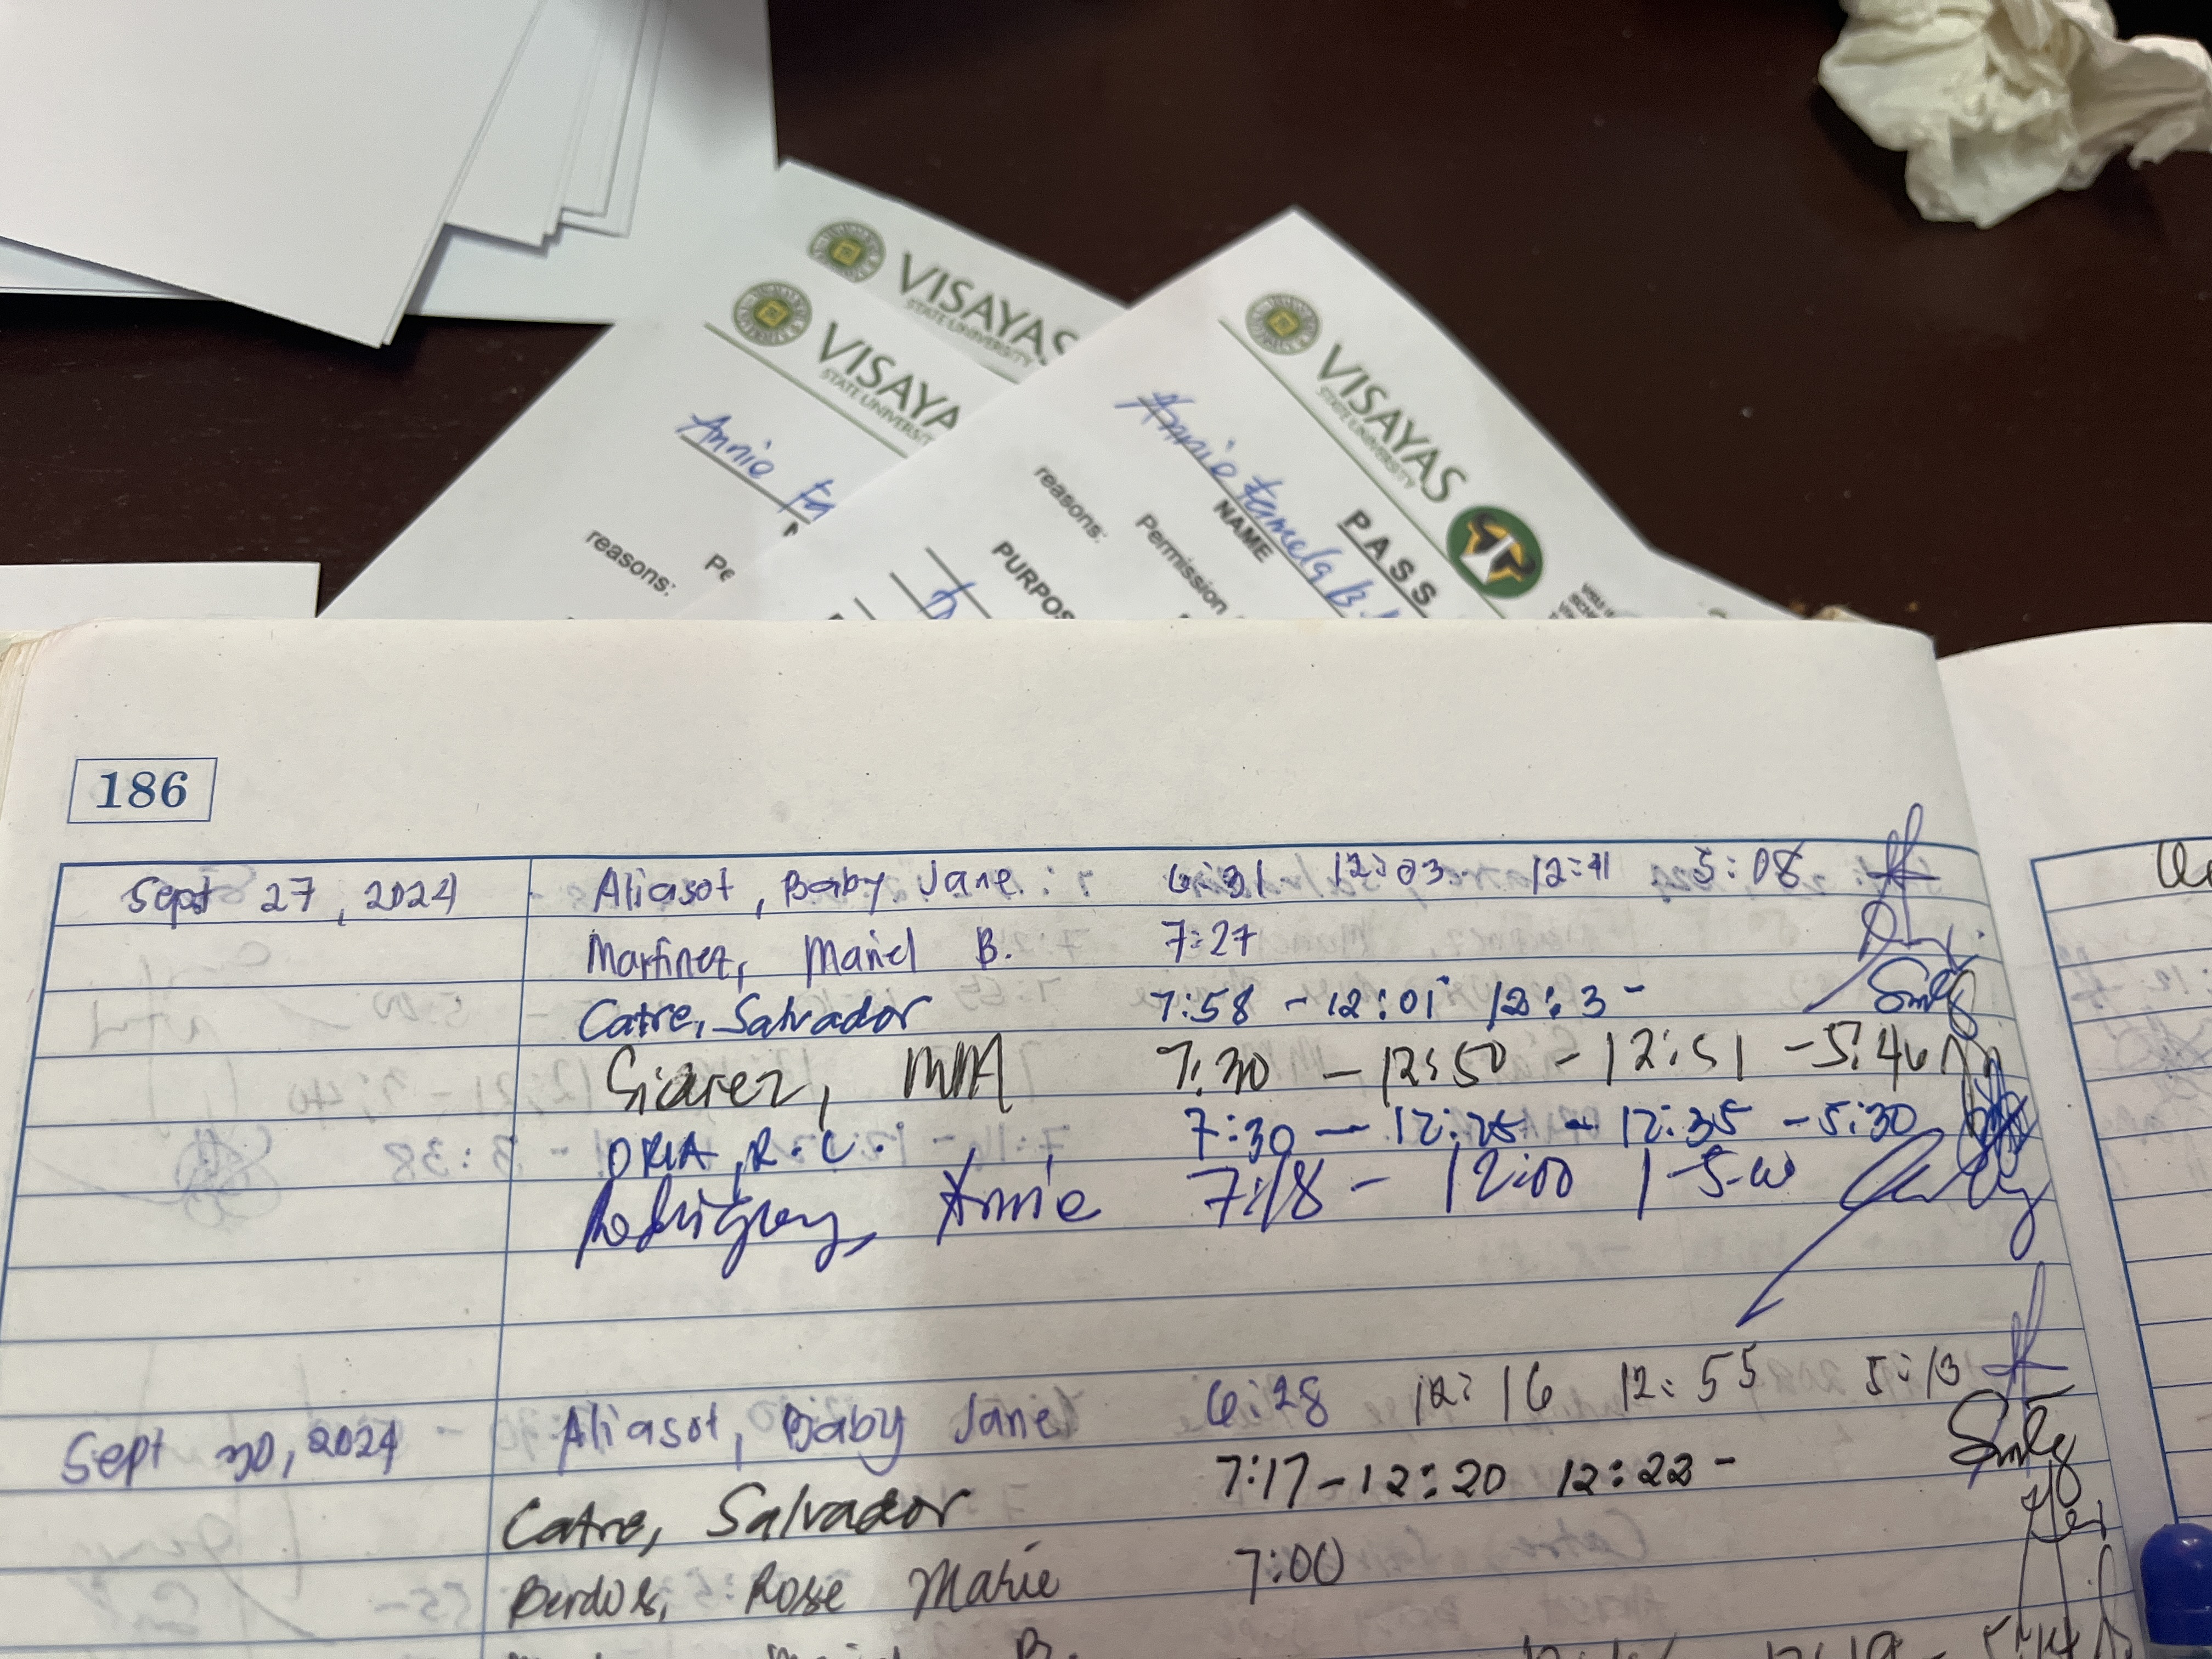 VISAYAS
STATE UNIVERSITY
VISAYA
STATE UNIVERSIT
Annie Fa
reasons:
Pe
VISAYAS
STATE UNIVERSITY
PASS
Annie Pamela B.
NAME
Permission
reasons:
PURPOS
186
Sept 27, 2024 Aliasot, Baby Jane 6:31 12:03 12:41 5:08
Martinez, Mariel B. 7:27
Catre, Salvador 7:58 - 12:01 12:3 -
Siarez, MM 7:30 - 12:50 - 12:51 - 5:46
ORIA, R.C. 7:30 - 12:25 - 12:35 - 5:30
Rodriguez, Annie 7:18 - 12:00 1 - 5:00
Sept 30, 2024 Aliasot, Baby Jane 6:28 12:16 12:55 5:13
Catre, Salvador 7:17 - 12:20 12:22 -
Berdos, Rose Marie 7:00